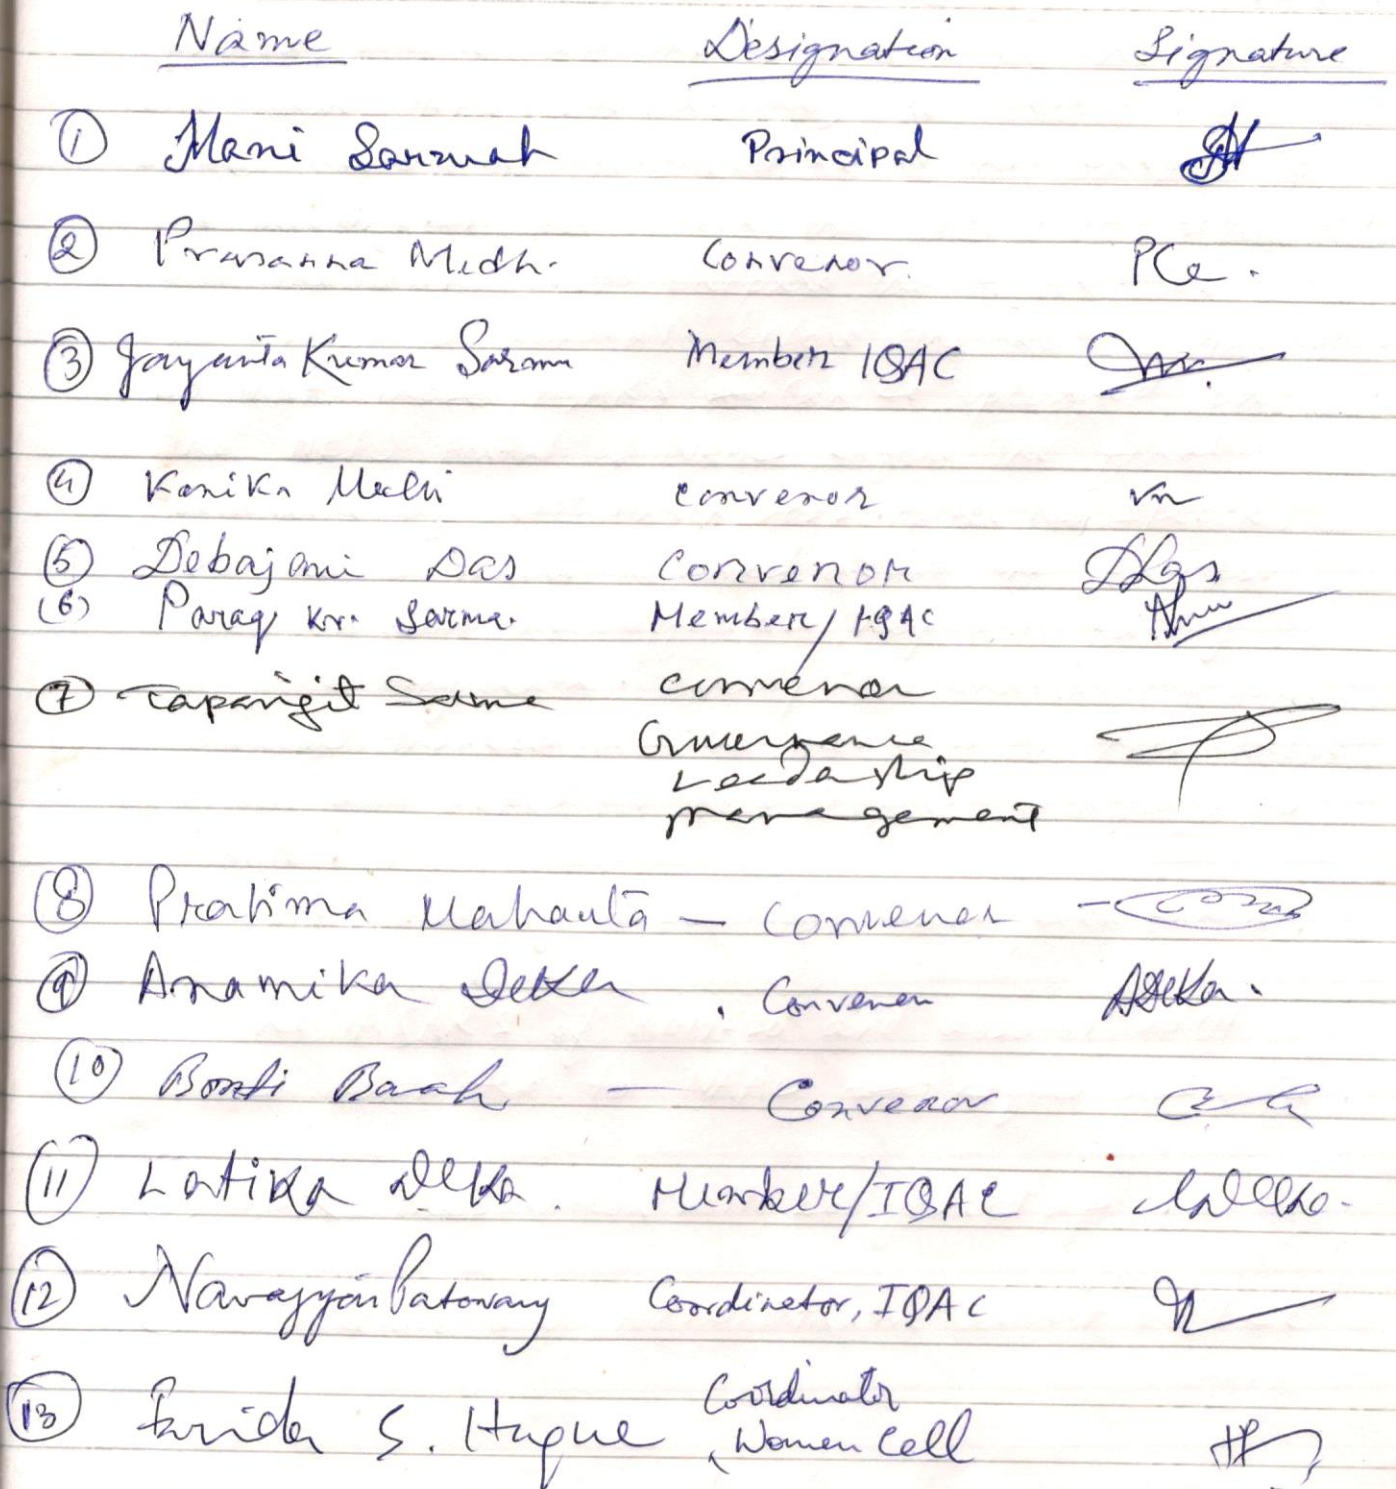 Name Designation Signature
① Mani Sarmah Principal
② Prasanna Medhi Convenor.
③ Jayanta Kumar Sarma Member IQAC
④ Kanika Mali convenor
⑤ Debajani Das Convenor DDas
(6) Parag Kr. Sarma. Member/IQAC
⑦ Tapanjit Sarma convenor
Governance
Leadership
management
⑧ Pratima Mahanta – Convenor –
⑨ Anamika Deka , Convenor ADeka.
⑩ Bonti Baah — Convenor
⑪ Latika Deka. Member/IQAC LDeka.
⑫ Navagyan Patowary Coordinator, IQAC
⑬ Farida S. Huque Coordinator
, Women Cell